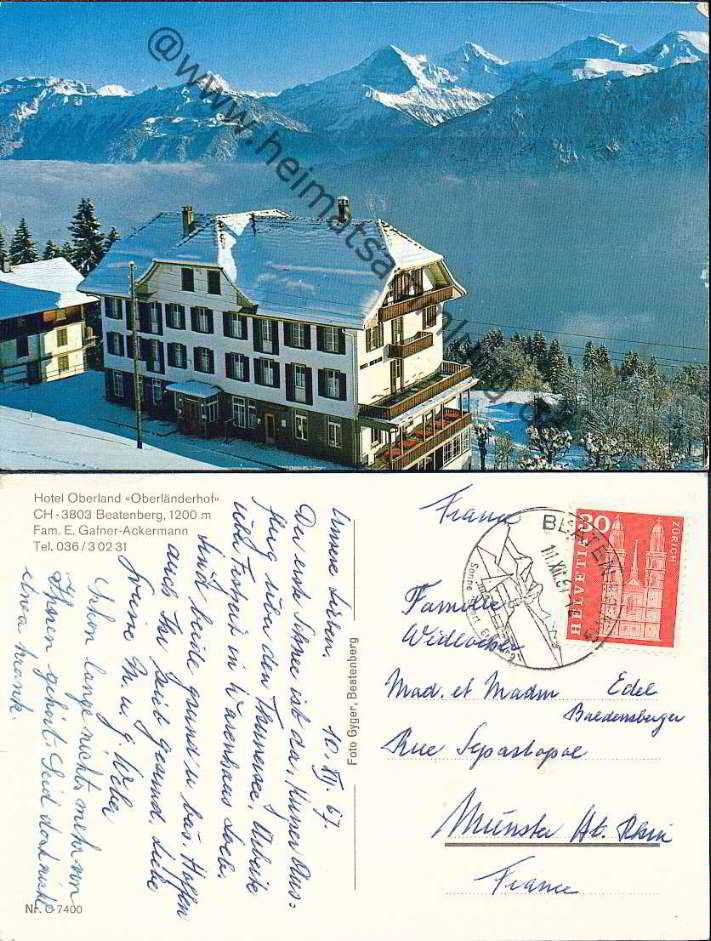 @www.heimatsammlung.de
Hotel Oberland «Oberländerhof»
CH-3803 Beatenberg, 1200 m
Fam. E. Gafner-Ackermann
Tel. 036 / 3 02 31
Unsere Lieben. 10. XII. 67.
Der erste Schnee ist da, kurzer Aus=
flug über den Thunersee, Arbeite
üb. Festzeit in Warenhaus Loeb,
sind beide gesund u. bas. Hoffen
auch Ihr seid gesund, Liebe
Grüsse M. u. g. Weber
Schon lange nichts mehr von
Ihnen gehört. Seid doch nicht
etwa krank.
Foto Gyger, Beatenberg
Nr. O 7400
France
BEATENBERG
11.XII.67
Sonne
HELVETIA
30
ZÜRICH
Familie
Mad. et Madm Edel
Baldensberger
Rue Sepastopol
Münster Ht. Rhin
France